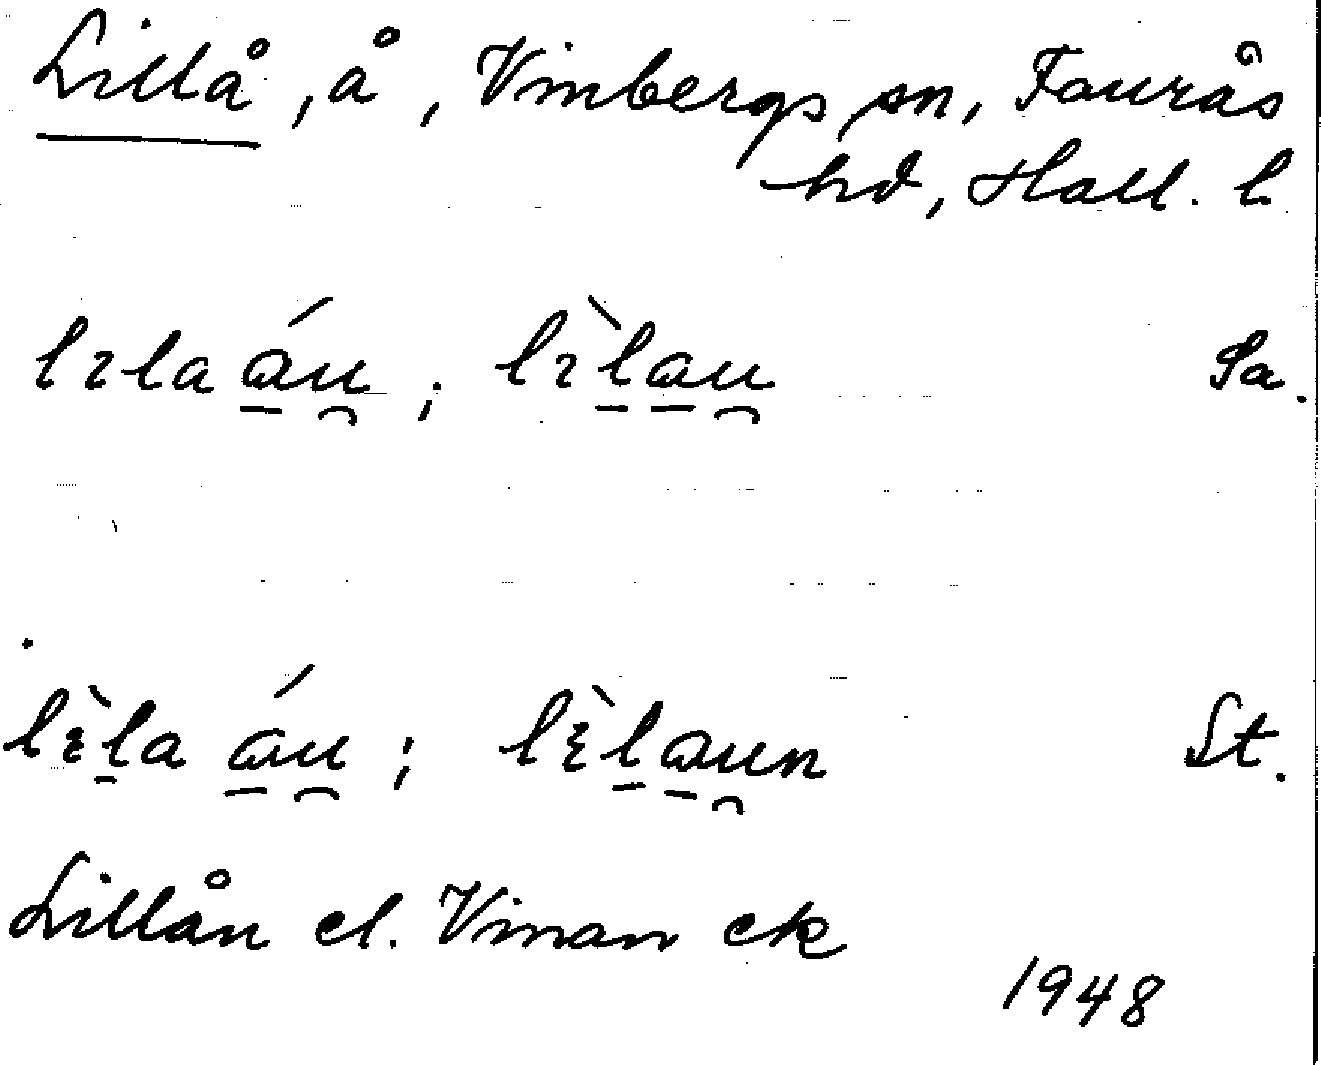 Lillå, å, Vinbergs sn, Faurås
hd, Hall. l.
lıla áu ; lı̀lau Sa.
lı̀la áu ; lı̀laun St.
Lillån el. Vinan ek
1948